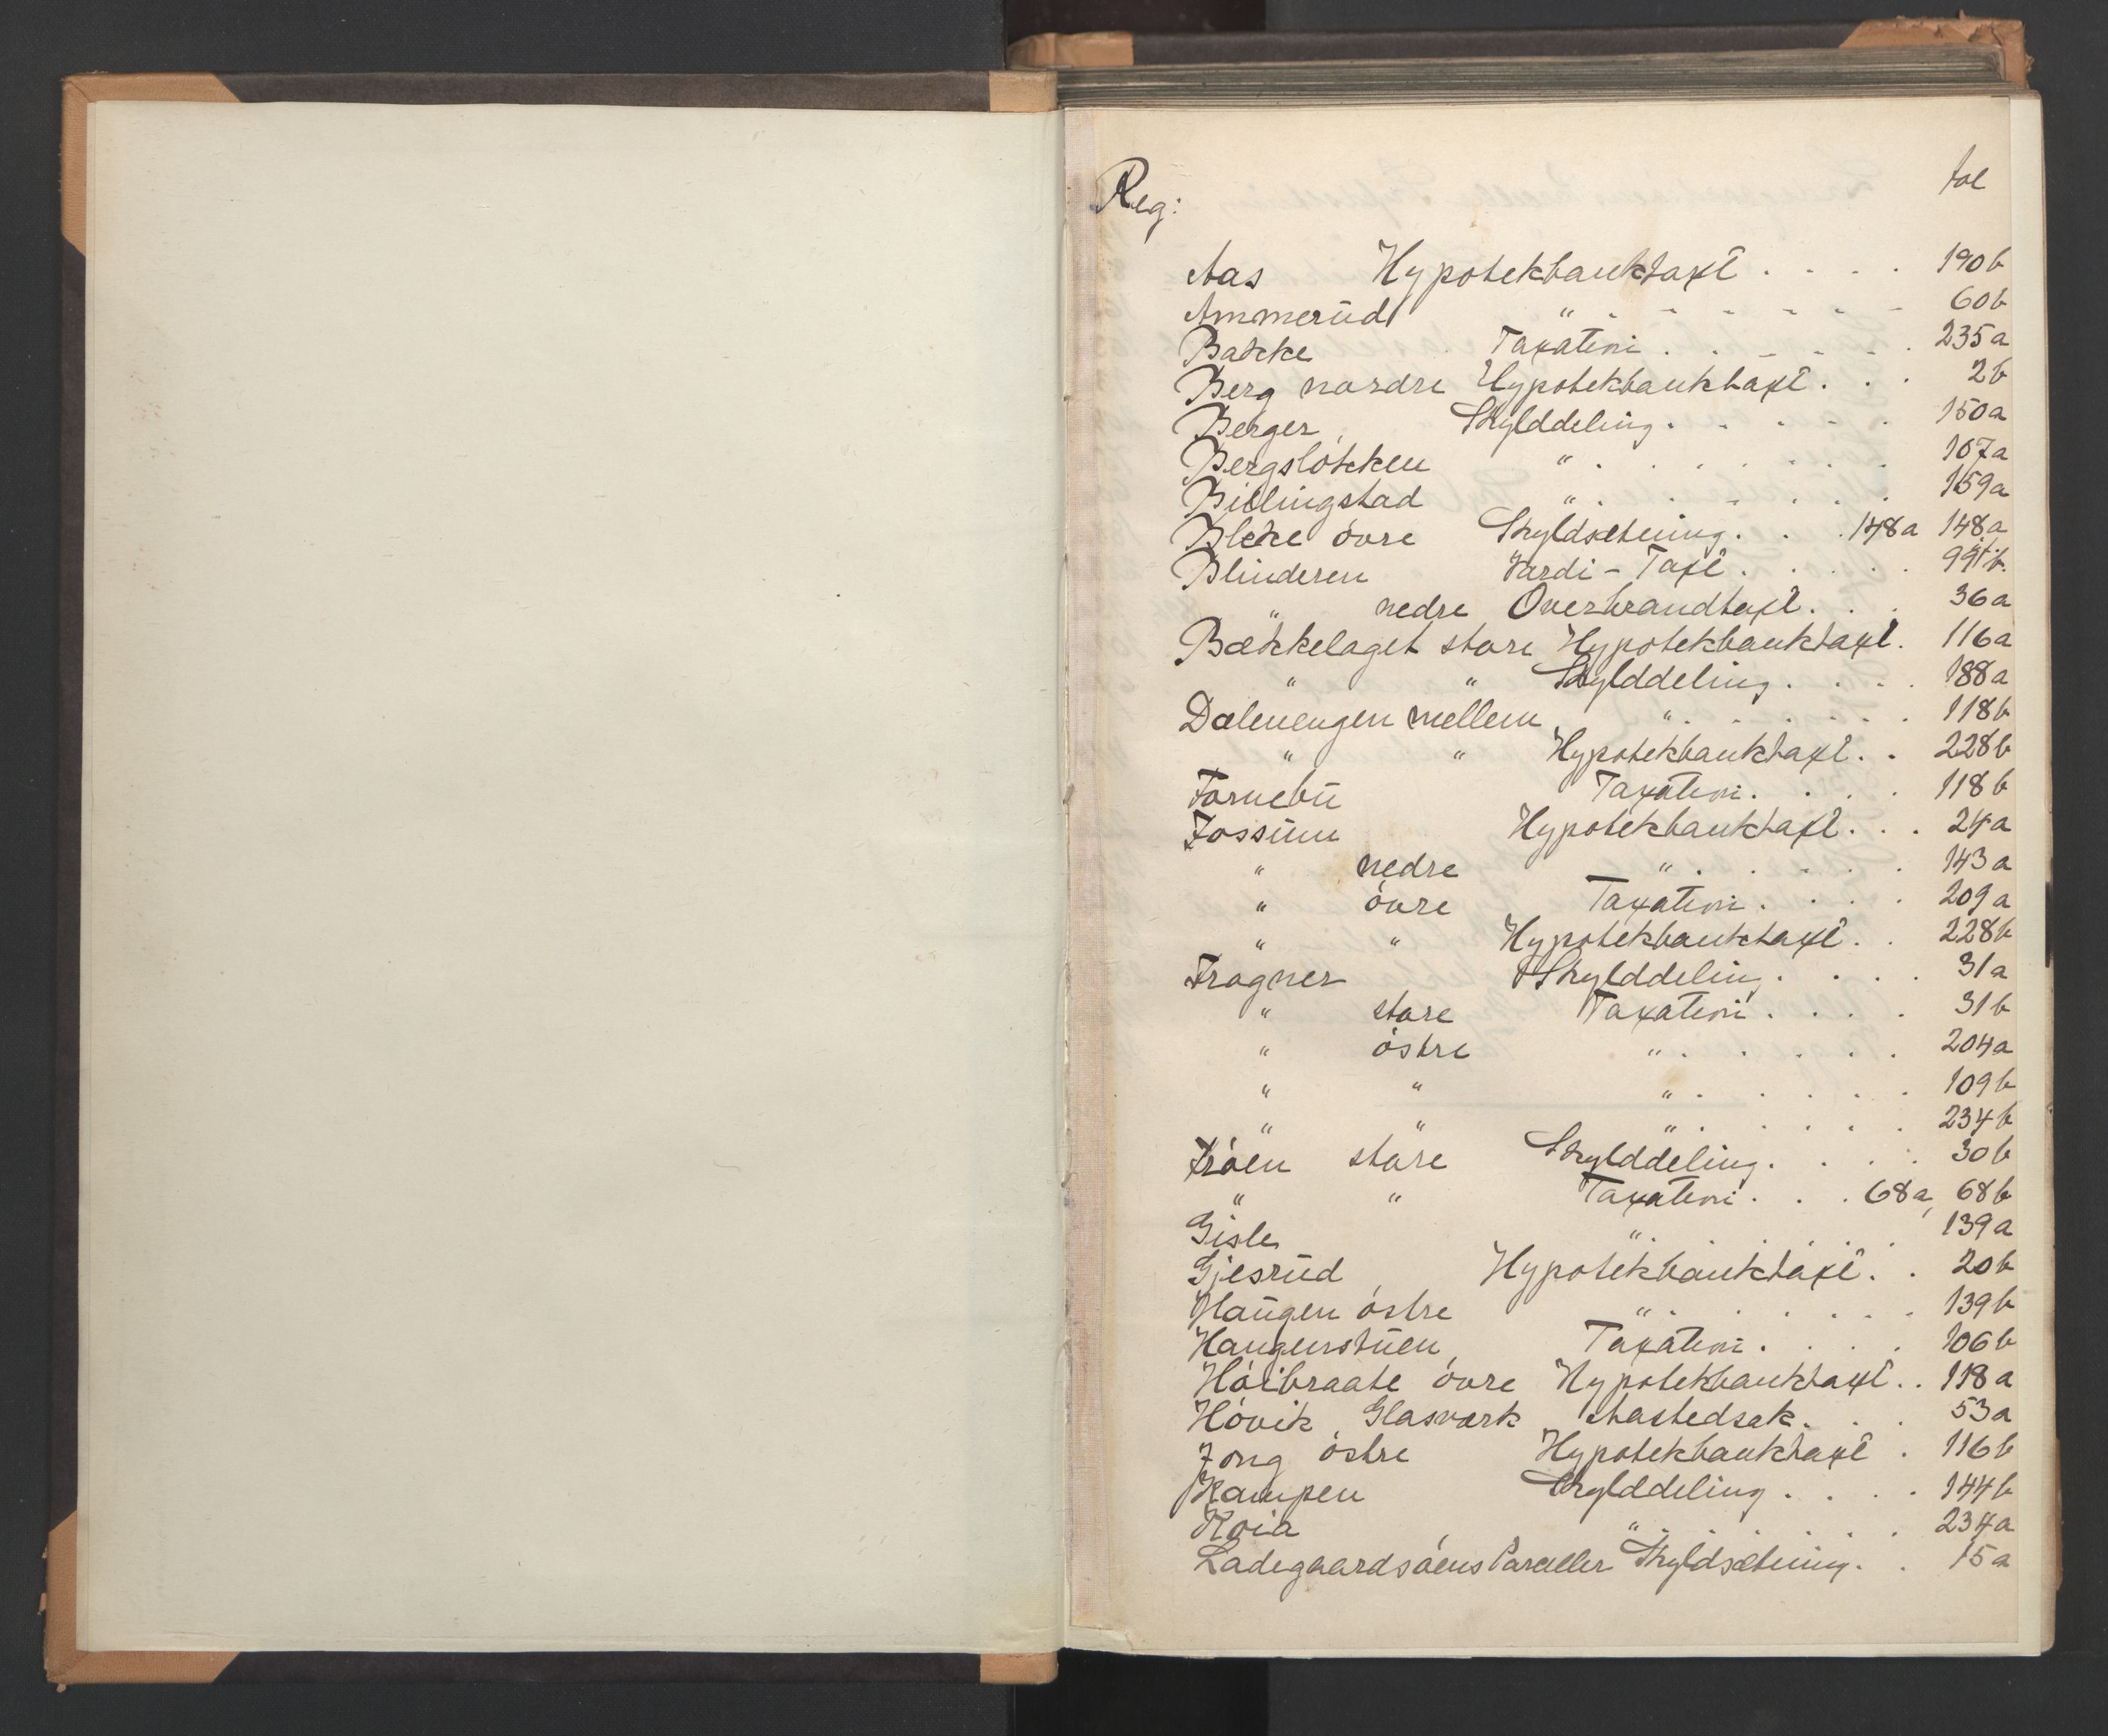 Reg: fol
Aas Hypotekbanktaxt . . . . 190b
Ammerud " . - - - - - - 60b
Bakke Taxation . . . . . . 235a
Berg nordre Hypotekbanktaxt . . . 2b
Berger Skylddeling . . . . . 150a
Bergsløkken " . . . . . . . 107a
Billingstad " . . . . . . . 159a
Bleke øvre Skyldsætning . . . 148a 148a
Blinderen Værdi-Taxt . . . . . 99b
" nedre Overbrandtaxt . . . 36a
Bækkelaget store Hypotekbanktaxt . 116a
" " Skylddeling . . . . 188a
Dælenengen mellem " . . . . . . 118b
" " Hypotekbanktaxt . . 228b
Fornebu Taxation . . . . 118b
Fossum Hypotekbanktaxt . . . 24a
" nedre " . . . . . 143a
" øvre Taxation . . . . 209a
" " Hypotekbanktaxt . . 228b
Frogner Skylddeling . . . . 31a
" store Taxation . . . . 31b
" østre " . . . . . 204a
" " " . . . . . 109b
" " " . . . . . 234b
Frøen store Skylddeling . . . . 30b
" " Taxation . . . 68a, 68b
Gisle " . . . . . 139a
Gjesrud Hypotekbanktaxt . . 20b
Haugen østre " . . . . . . 139b
Haugenstuen Taxation . . . . 106b
Høibraate øvre Hypotekbanktaxt . . 118a
Høvik Glasværk Aastedsak . . . 53a
Jong østre Hypotekbanktaxt . 116b
Kampen Skylddeling . . . . 144b
Roia " . . . . . . 234a
Ladegaardsøens Parceller Skyldsætning . . 15a